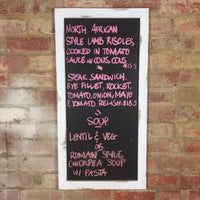 NORTH AFRICAN
STYLE LAMB RISOLES,
COOKED IN TOMATO
SAUCE W/ COUS COUS
$15
STEAK SANDWICH,
EYE FILLET, ROCKET,
TOMATO, ONION, MAYO
& TOMATO RELISH $18.5
SOUP
LENTIL & VEG
OR
ROMAIN STYLE
CHICKPEA SOUP
W/ PASTA